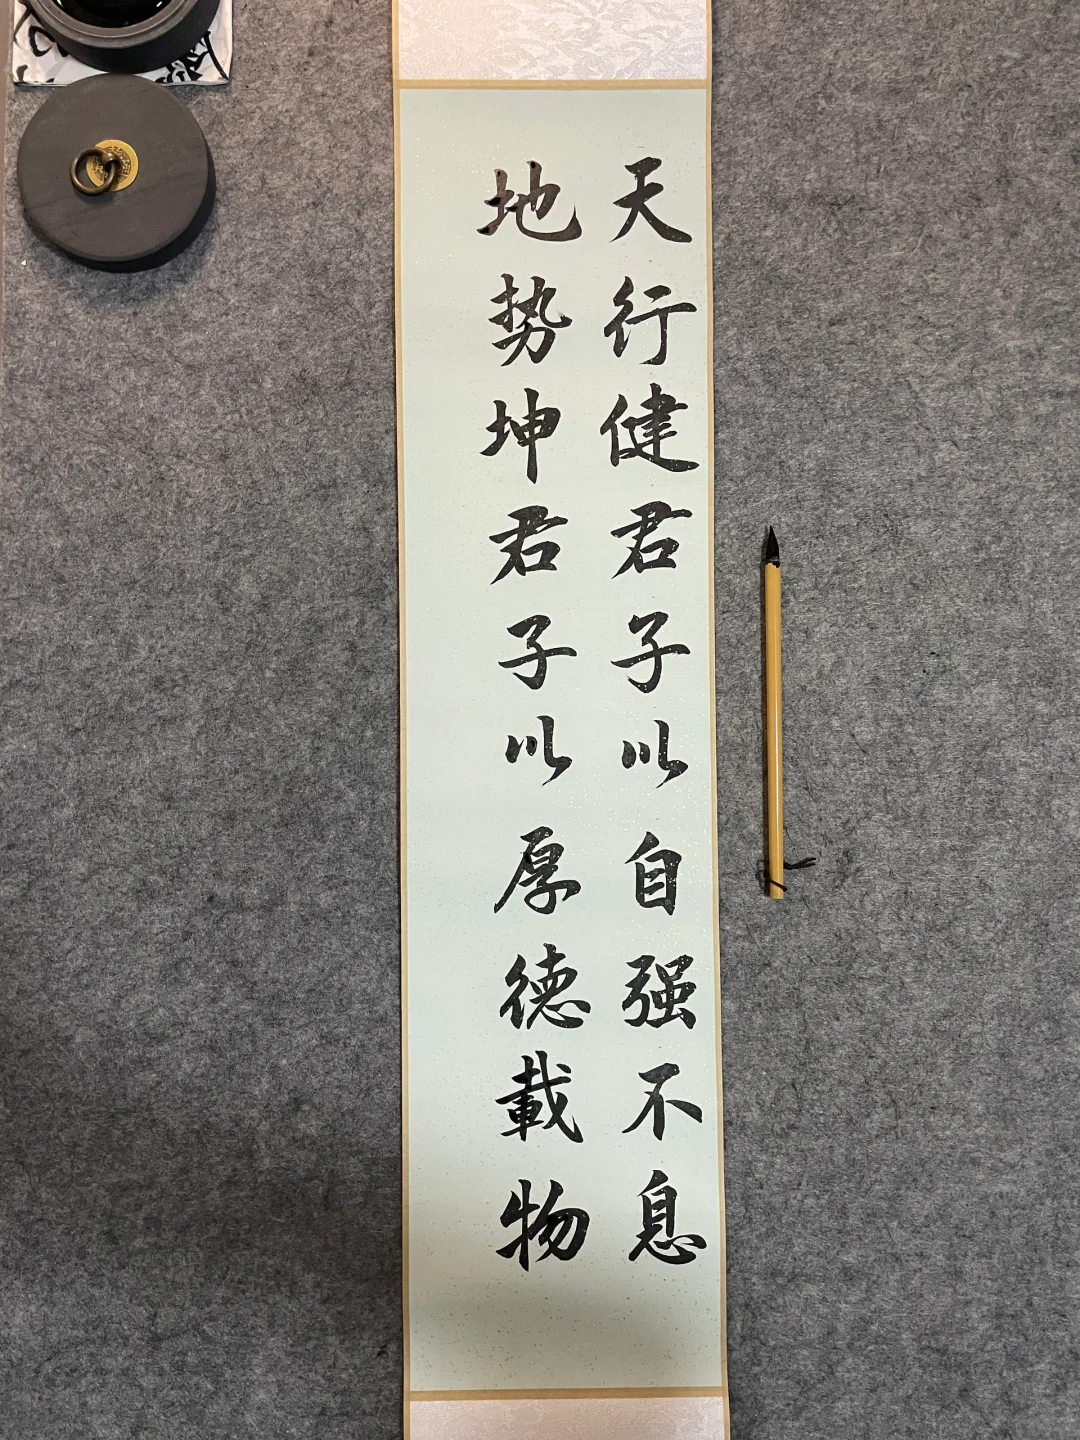 天行健君子以自强不息
地势坤君子以厚德載物